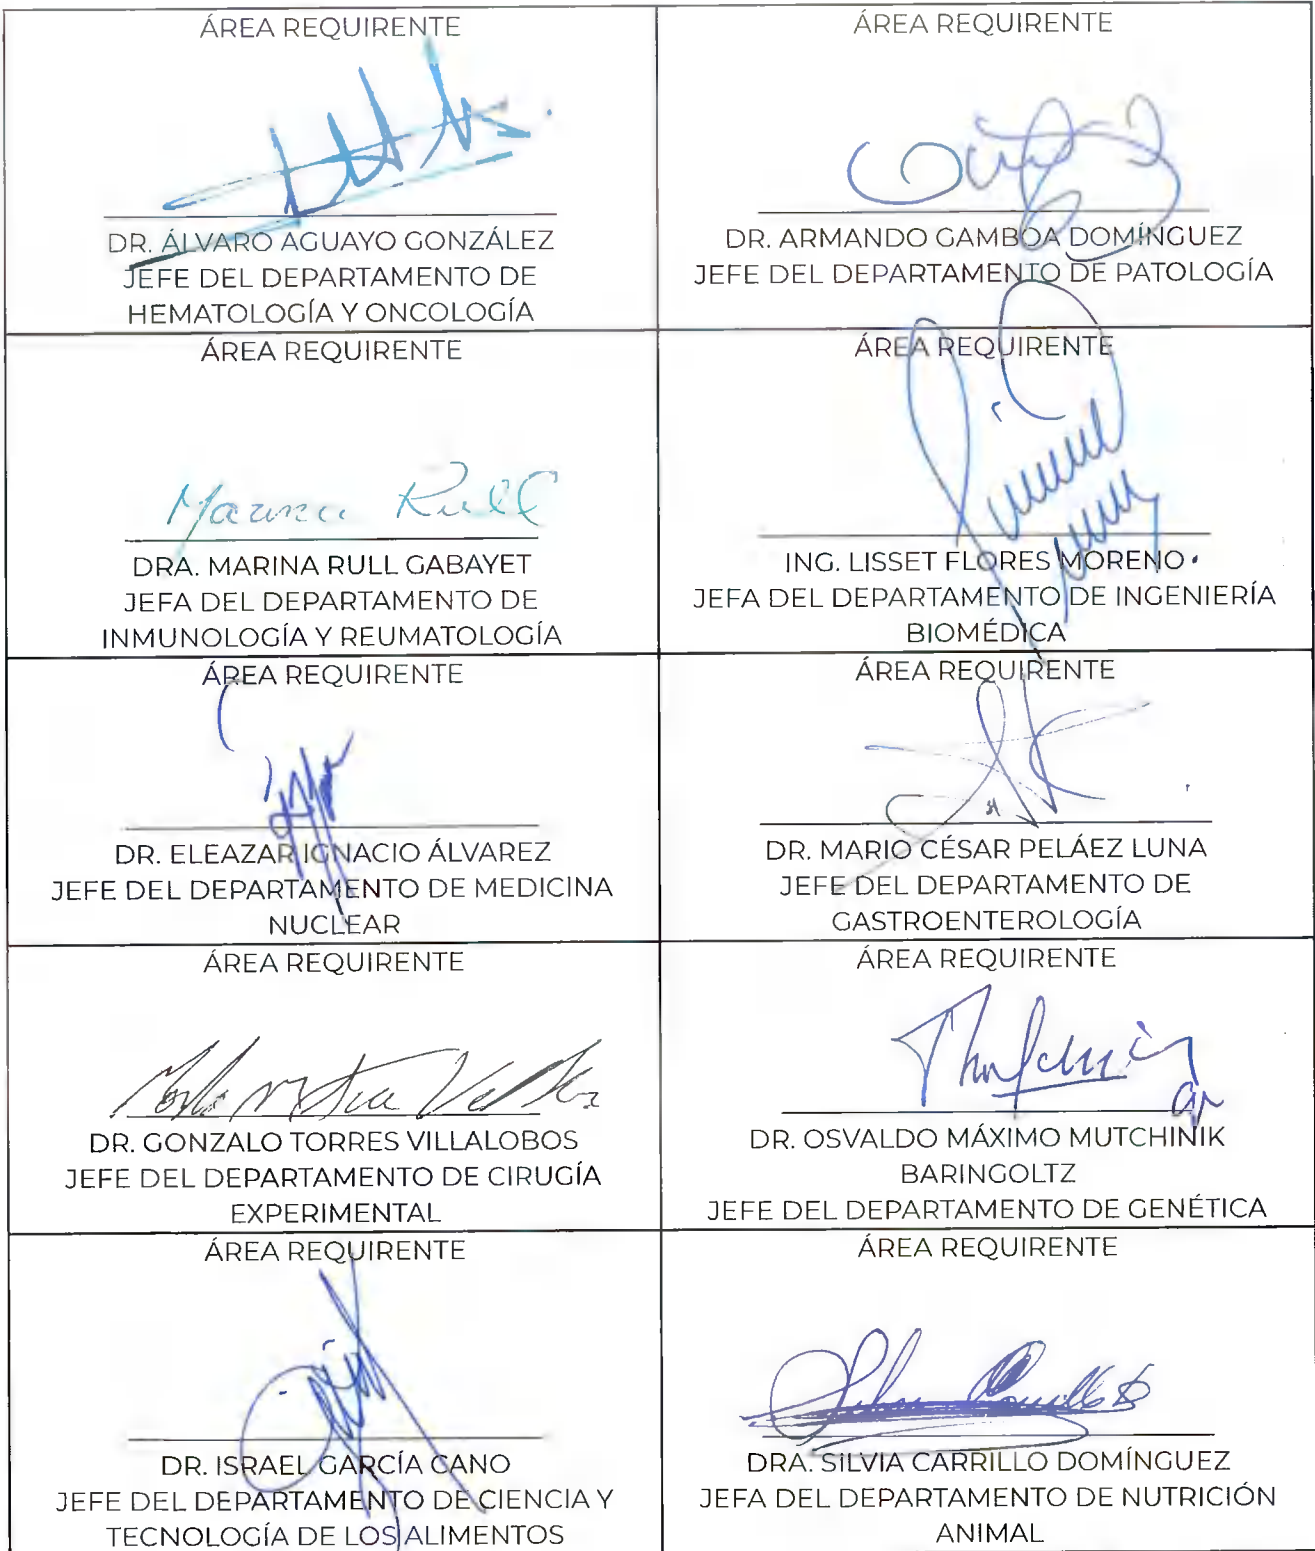 ÁREA REQUIRENTE
DR. ÁLVARO AGUAYO GONZÁLEZ
JEFE DEL DEPARTAMENTO DE
HEMATOLOGÍA Y ONCOLOGÍA
ÁREA REQUIRENTE
DR. ARMANDO GAMBOA DOMÍNGUEZ
JEFE DEL DEPARTAMENTO DE PATOLOGÍA
ÁREA REQUIRENTE
Marina Rull
DRA. MARINA RULL GABAYET
JEFA DEL DEPARTAMENTO DE
INMUNOLOGÍA Y REUMATOLOGÍA
ÁREA REQUIRENTE
ING. LISSET FLORES MORENO
JEFA DEL DEPARTAMENTO DE INGENIERÍA
BIOMÉDICA
ÁREA REQUIRENTE
DR. ELEAZAR IGNACIO ÁLVAREZ
JEFE DEL DEPARTAMENTO DE MEDICINA
NUCLEAR
ÁREA REQUIRENTE
DR. MARIO CÉSAR PELÁEZ LUNA
JEFE DEL DEPARTAMENTO DE
GASTROENTEROLOGÍA
ÁREA REQUIRENTE
DR. GONZALO TORRES VILLALOBOS
JEFE DEL DEPARTAMENTO DE CIRUGÍA
EXPERIMENTAL
ÁREA REQUIRENTE
DR. OSVALDO MÁXIMO MUTCHINIK
BARINGOLTZ
JEFE DEL DEPARTAMENTO DE GENÉTICA
ÁREA REQUIRENTE
DR. ISRAEL GARCÍA CANO
JEFE DEL DEPARTAMENTO DE CIENCIA Y
TECNOLOGÍA DE LOS ALIMENTOS
ÁREA REQUIRENTE
DRA. SILVIA CARRILLO DOMÍNGUEZ
JEFA DEL DEPARTAMENTO DE NUTRICIÓN
ANIMAL